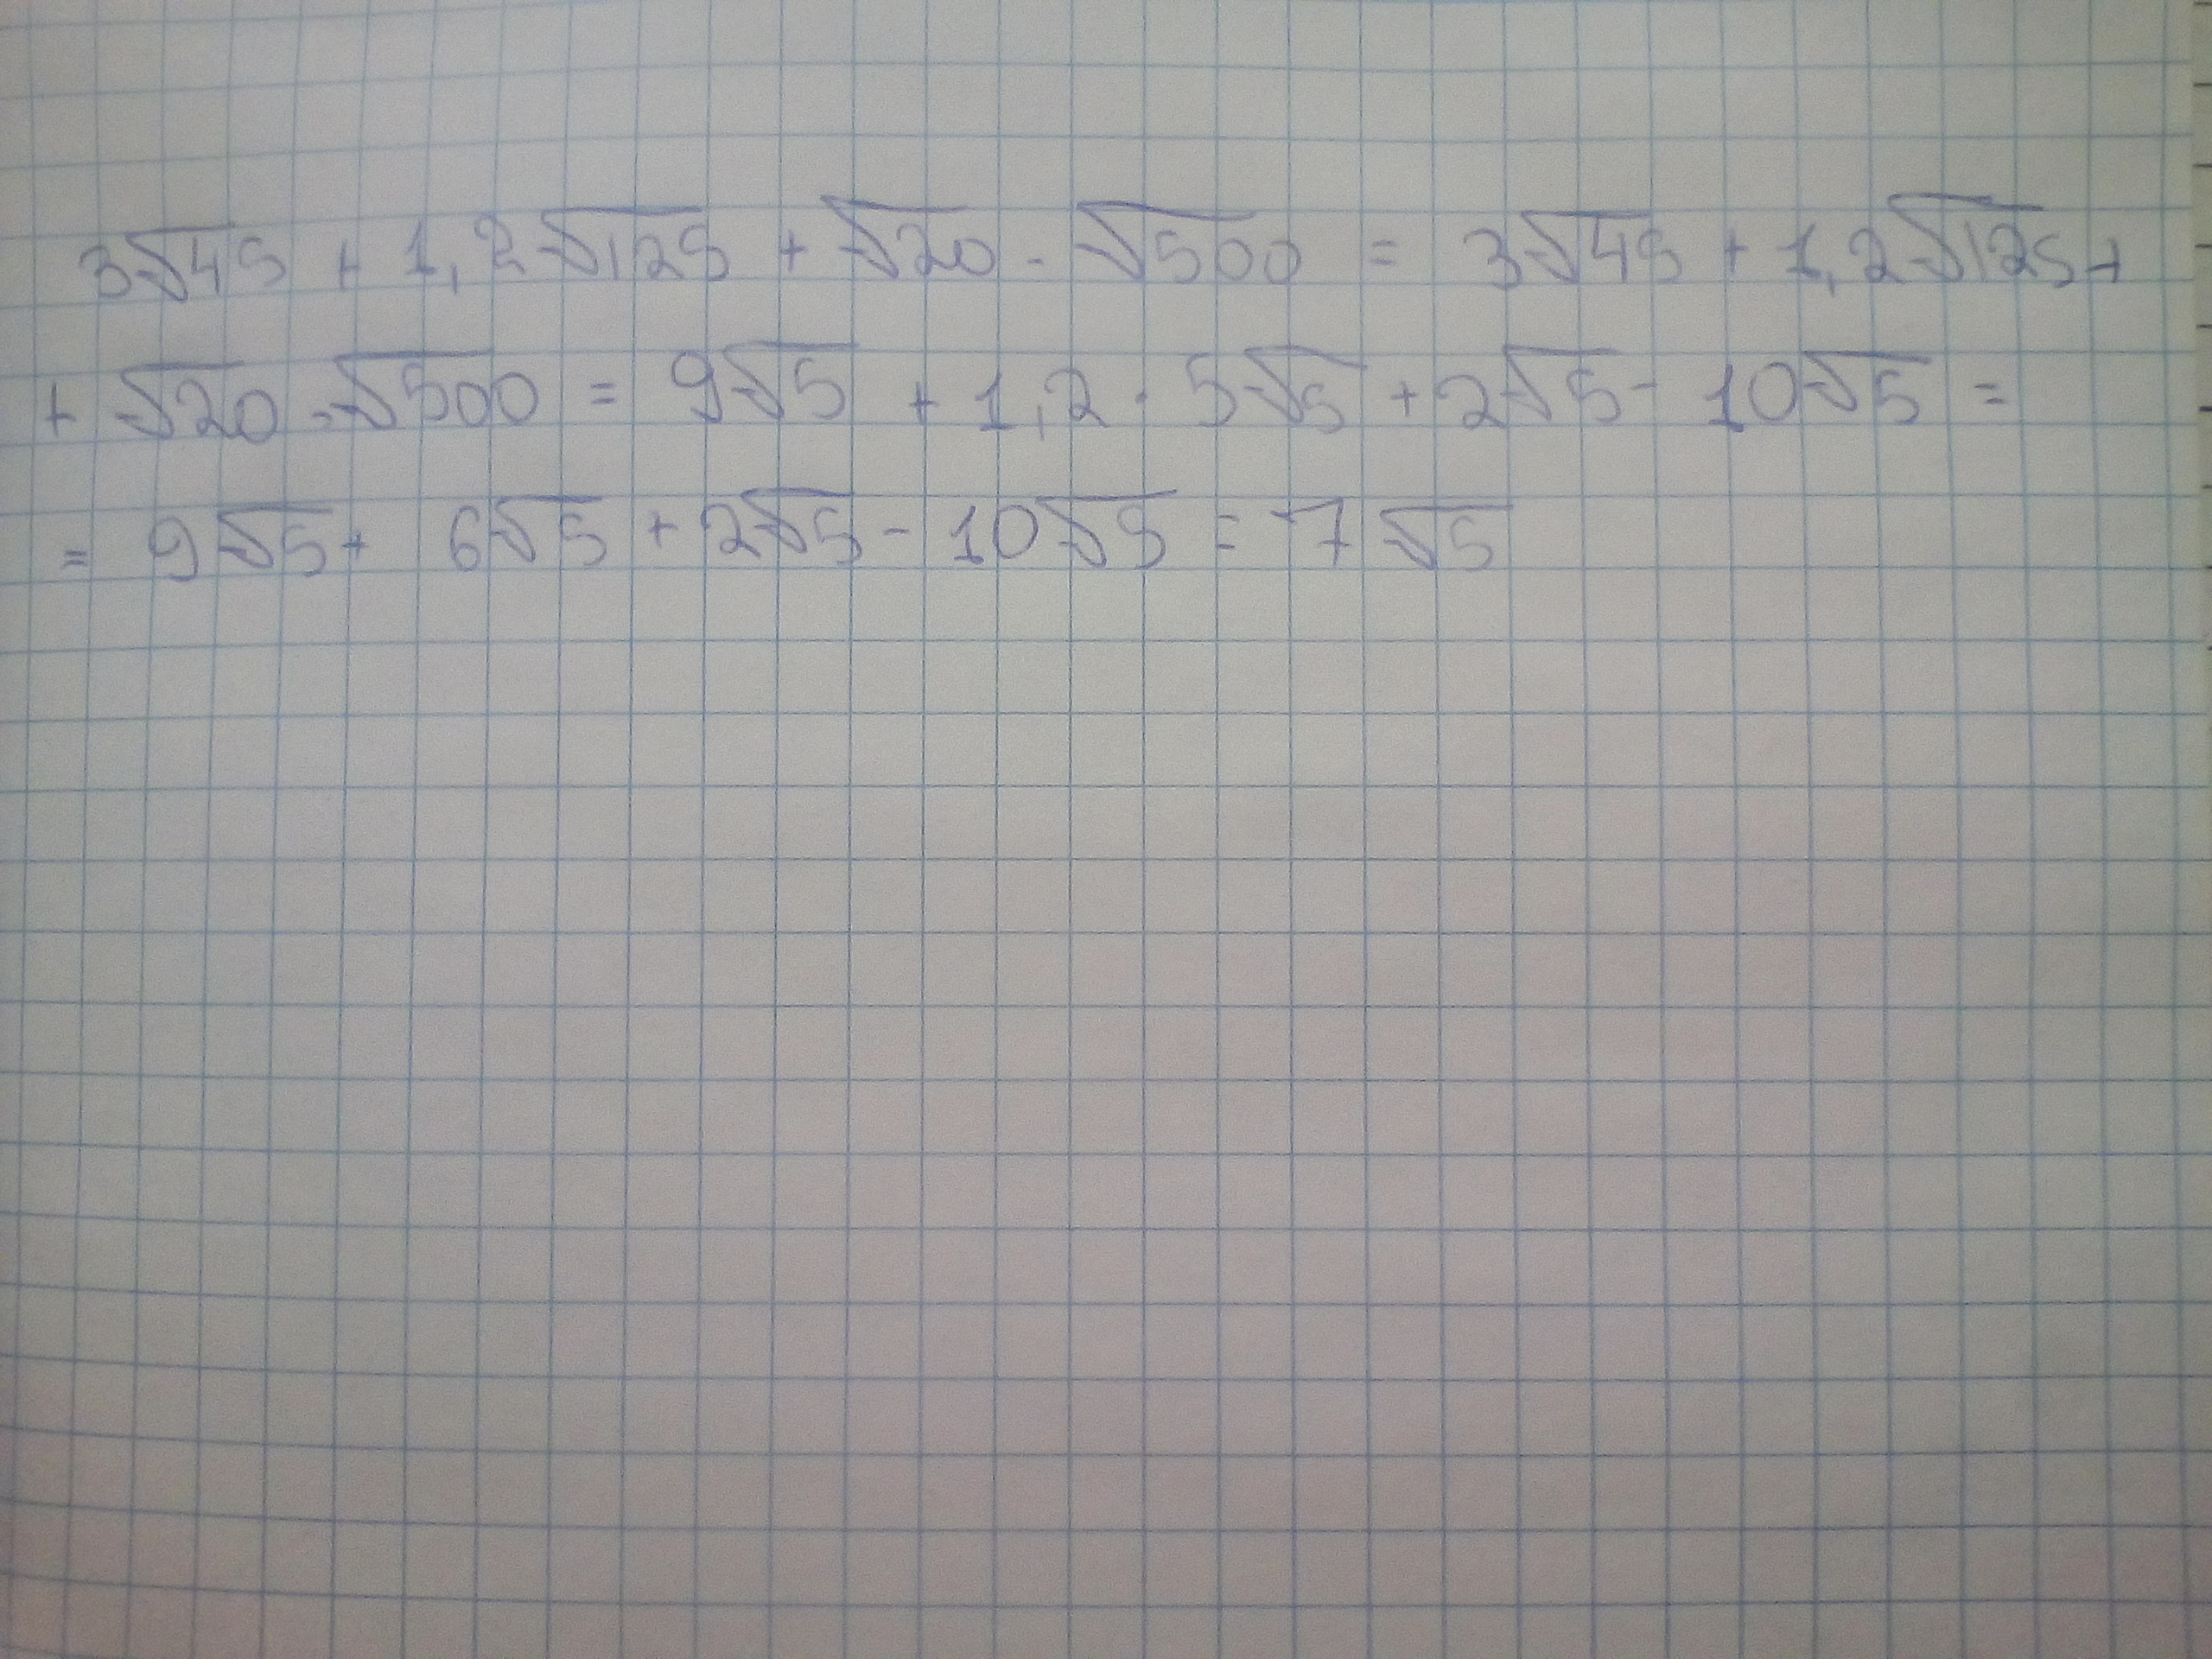 3√45 + 1,2√125 + √20 - √500 = 3√45 + 1,2√125+
+ √20 - √500 = 9√5 + 1,2 · 5√5 + 2√5 - 10√5 =
= 9√5 + 6√5 + 2√5 - 10√5 = 7√5